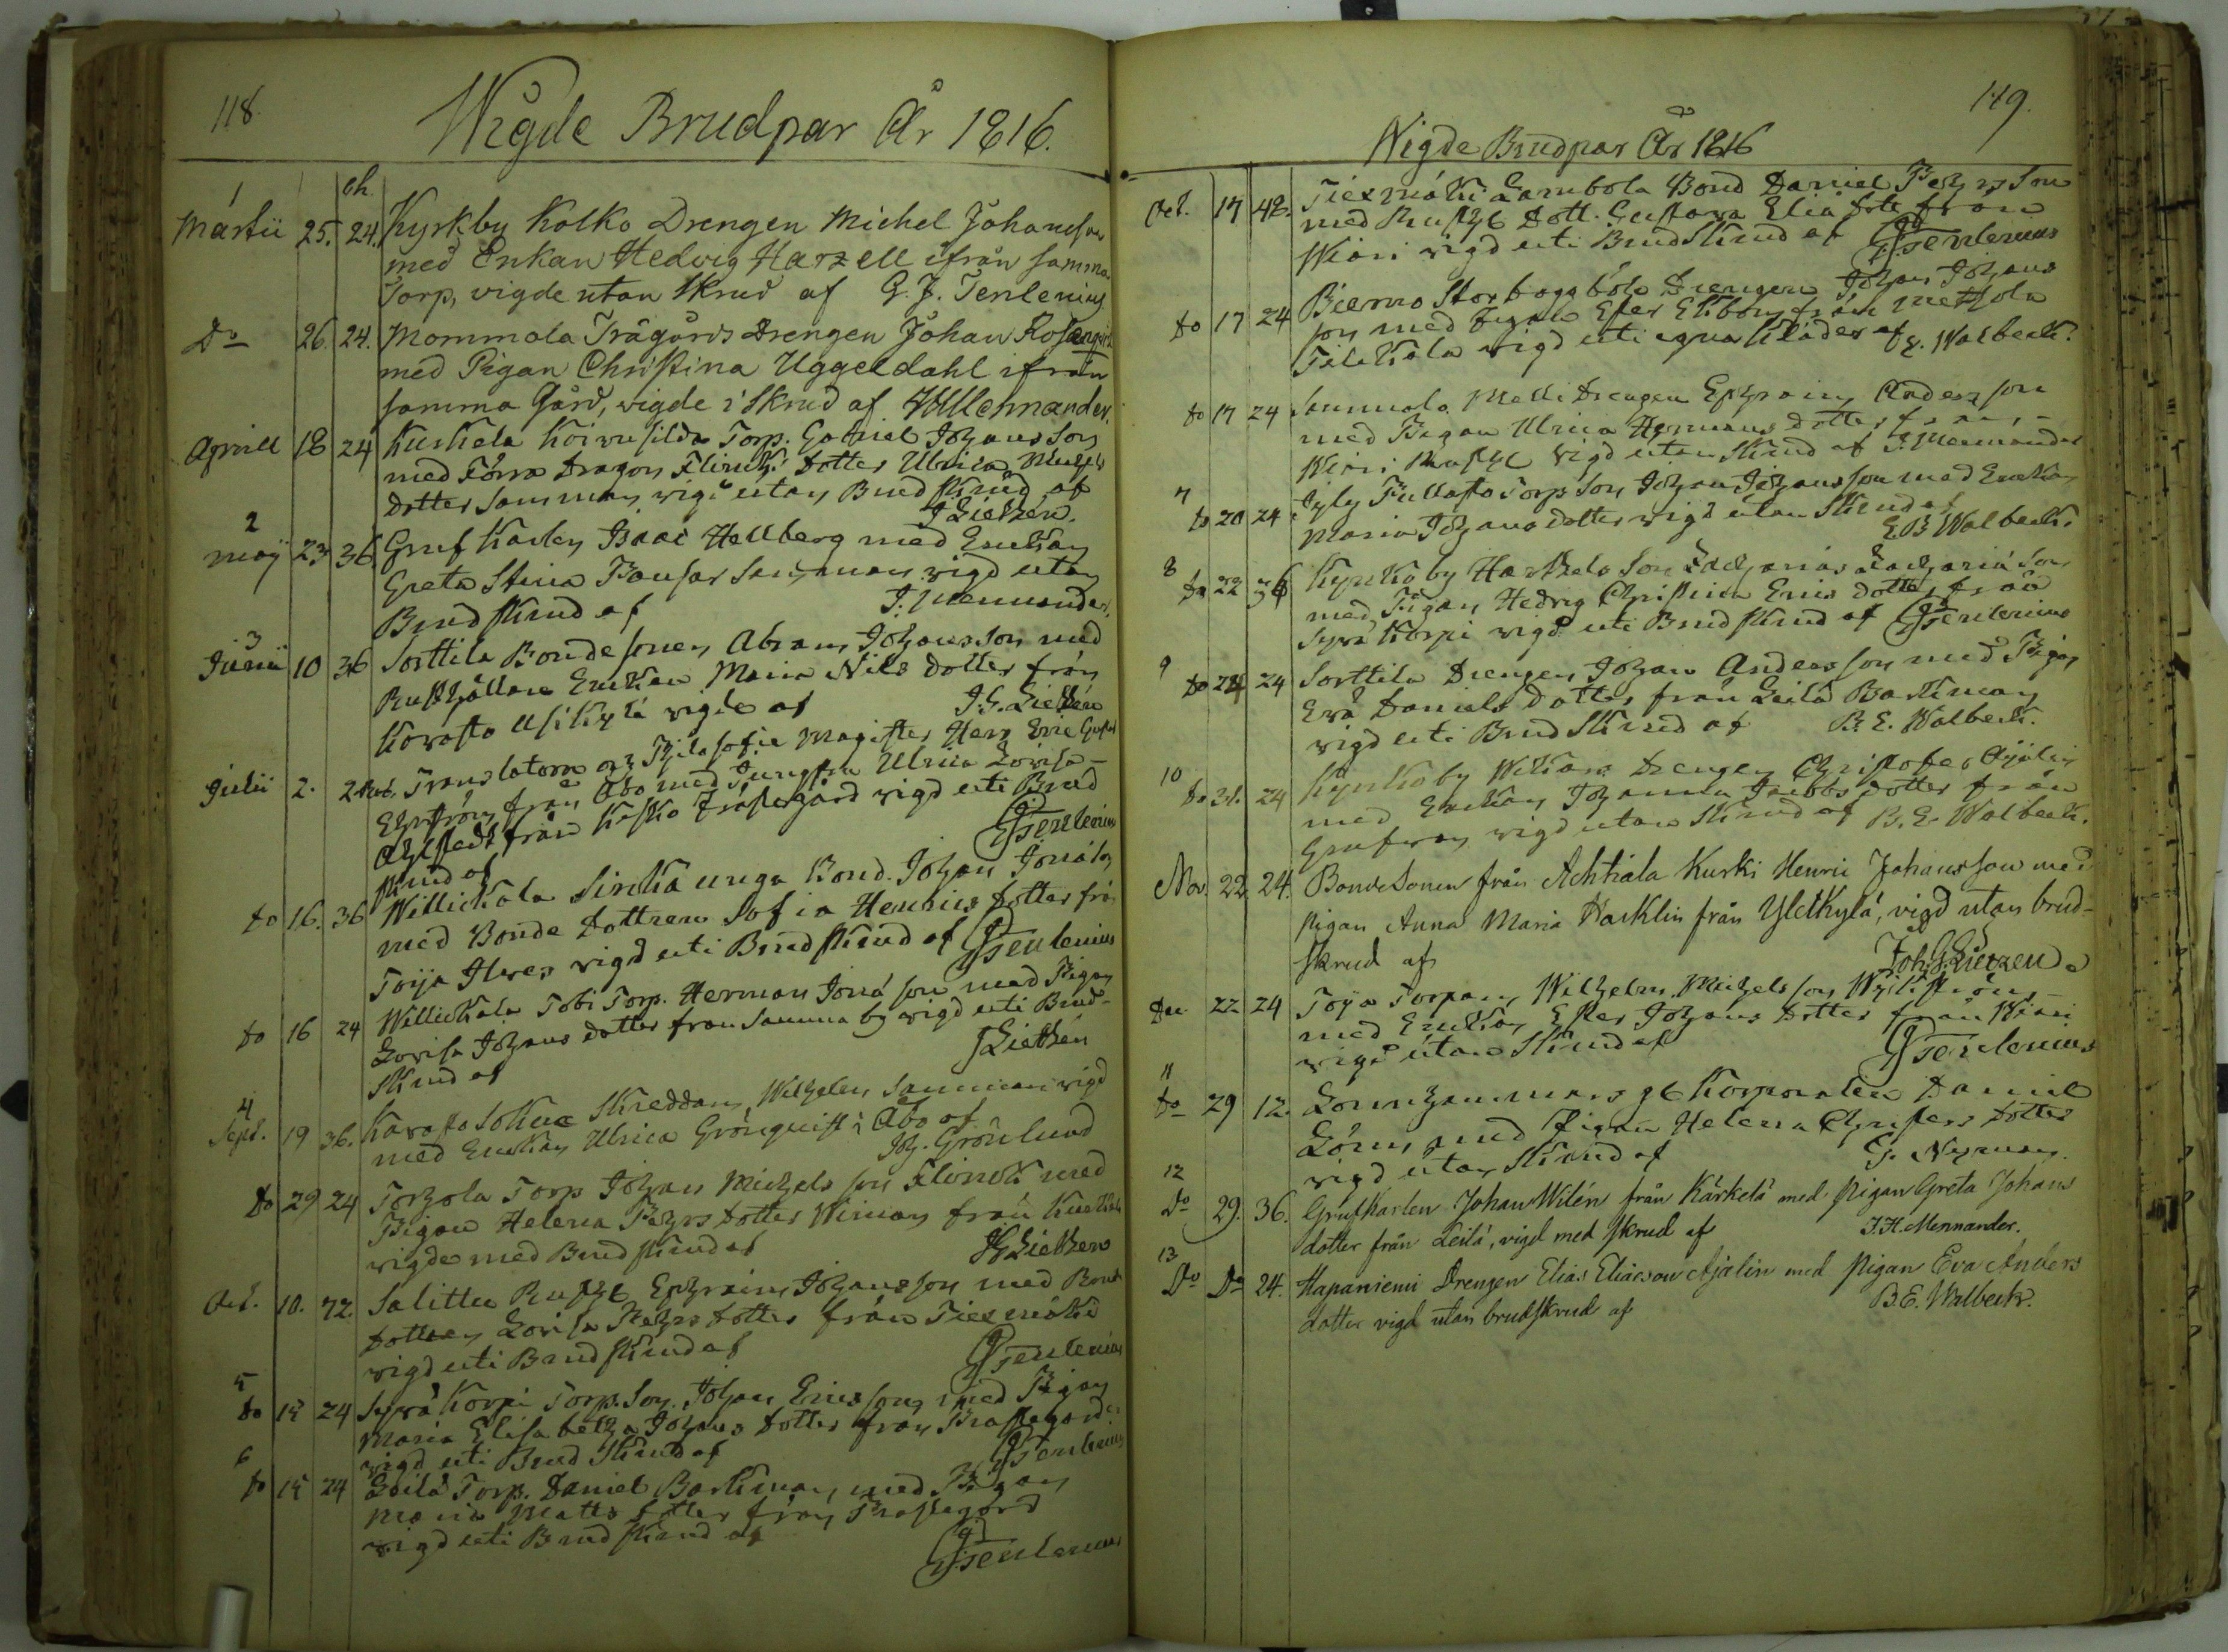 118.
Wigde Brudpar År 1816.
sk.
1
Martii 25. 24. Kyrkby Kolko Drengen Michel Johansson
med Enkan Hedvig Harzell ifrån samma
Torp, vigde utan skrud af G. J. Tenlenius
Do 26. 24. Mommola Trägårds Drengen Johan Rosenqvist
med Pigan Christina Uggeldahl ifrån
samma Gård, vigde i skrud af Mennander.
Aprill 18 24 Kuskela Koivusilda Torp. Gabriel Johansson
med Förra Dragon Flinks dotter Ulrica
dotter samman vigd utan Brudskrud af
J Lietzen.
2
Maij 23 36 Grufkarlen Isaac Hellberg med Enckan
Greta Stina Pansar samman vigd utan
Brudskrud af J. Mennander.
3
Junii 10 36 Sorttila Bonde sonen Abram Johansson med
Rusthållare Enckan Maria Nils dotter från
Kovasto Usikylä vigde af J. G. Lietzén
Julii 2. 2 Rub. Translatorn och Philosofie Magister Herr Eric Gustaf
Ehrström från Åbo med Jungfru Ulrica Lovisa
Ahlstedt från Kisko Prästegård vigd uti Brud
skrud af GJTenlenius
do 16. 36 Willickala Sirkka unga Bond. Johan Jonasson
med Bonde dottren Sofia Henrics dotter från
Toija Ilves vigd uti Brudskrud af GJTenlenius
do 16 24 Willickala Tobi Torp. Herman Jonasson med Pigan
Lovisa Johans dotter från samma by vigd uti Brud-
skrud af JLietzén
4
Sept. 19 36. Kavasto Sockne Skreddarn Wilhelm Samman vigd
med Enckan Ulrica Grönquist i Åbo af
Joh. Grönlund
do 29 24 Torhola Torp Johan Michels son Flinck med
Pigan Helena Pehrs dotter Wirman från
vigde med Brudskrud af JGLietzen
Oct. 10. 72. Salittu Rusth. Ephraim Johansson med Bonde
dottren Lovisa Pehrs dotter från Tiexmäki
vigd uti Brudskrud af GJTenlenius
5
do 15 24 Syvä Korpi Torp. Son Johan Ericsson med Pigan
Maria Elisabetha Johans dotter från Prästegård
vigd uti Brud skrud af GJTenlenius
6
do 15 24 Leilä Torp. Daniel Barkman med Pigan
Maria Matts dotter från Prästegård
vigd uti Brudskrud af GJTenlenius
119.
Wigde Brudpar År 1816
Oct. 17 48. Tiexmäki Lambola Bond Daniel Pehrsson
med Rusth. Dott. Gustava Elia dotter från
Wiari vigd uti Brudskrud af GJTenlenius
do 17 24 Bierno Storboggböle Drengen Johan Johans
son med Pigan Ester Ekbom från Metsola
vigd uti egna kläder af E. Walbeck.
do 17 24 Sammalo Melli Drengen Ephraim Andersson
med Pigan Ulrica Hermans dotter från
Wiari Rusthl vigd utan skrud af J. Mennander
7
do 20 24 Torp Son Johan Johansson med Enckan
Maria Johans dotter vigd utan skrud af
E. B Walbeck.
8
do 22 36 Kyrkoby Harkkela Son Zacharias Zachariason
med Pigan Hedvig Christina Erics dotter från
Syvä Korpi vigd uti Brud skrud af GJTenlenius
9
do 24 24 Sorttila Drengen Johan Andersson med Pigan
Eva Daniels dotter från Leilä Barkman
vigd uti Brudskrud af B. E. Walbeck.
10
do 31. 24 Kyrkoby Drengen Christofer Ajalin
med Enckan Johanna Jacobs dotter från
Grufvan vigd utan skrud af B. E. Walbeck.
Nov. 22. 24. Bondesonen från Achtiala Kurki Henric Johansson med
Pigan Anna Maria Harklin från Yletkylä, vigd utan brud-
skrud af Joh. G. Lietzen
Do 22 24 Toija Torparn Wilhelm Michels son
med Enckan Ester Johans dotter från Wiari
vigd utan skrud af GJTenlenius
11
do 29 12. Lönnhammars gl Korporalen Daniel
Lönn med Pigan Helena Christers dotter
vigd utan skrud af G. Nyman.
12
Do 29. 36. Grufkarlen Johan Wilén från Kärkelä med Pigan Greta Johans
dotter från Leilä, vigd med skrud af J. H. Mennander.
13
Do Do 24. Haapaniemi Drengen Elias Eliasson Ajalin med Pigan Eva Anders
dotter vigd utan brudskrud af B. E. Walbeck.